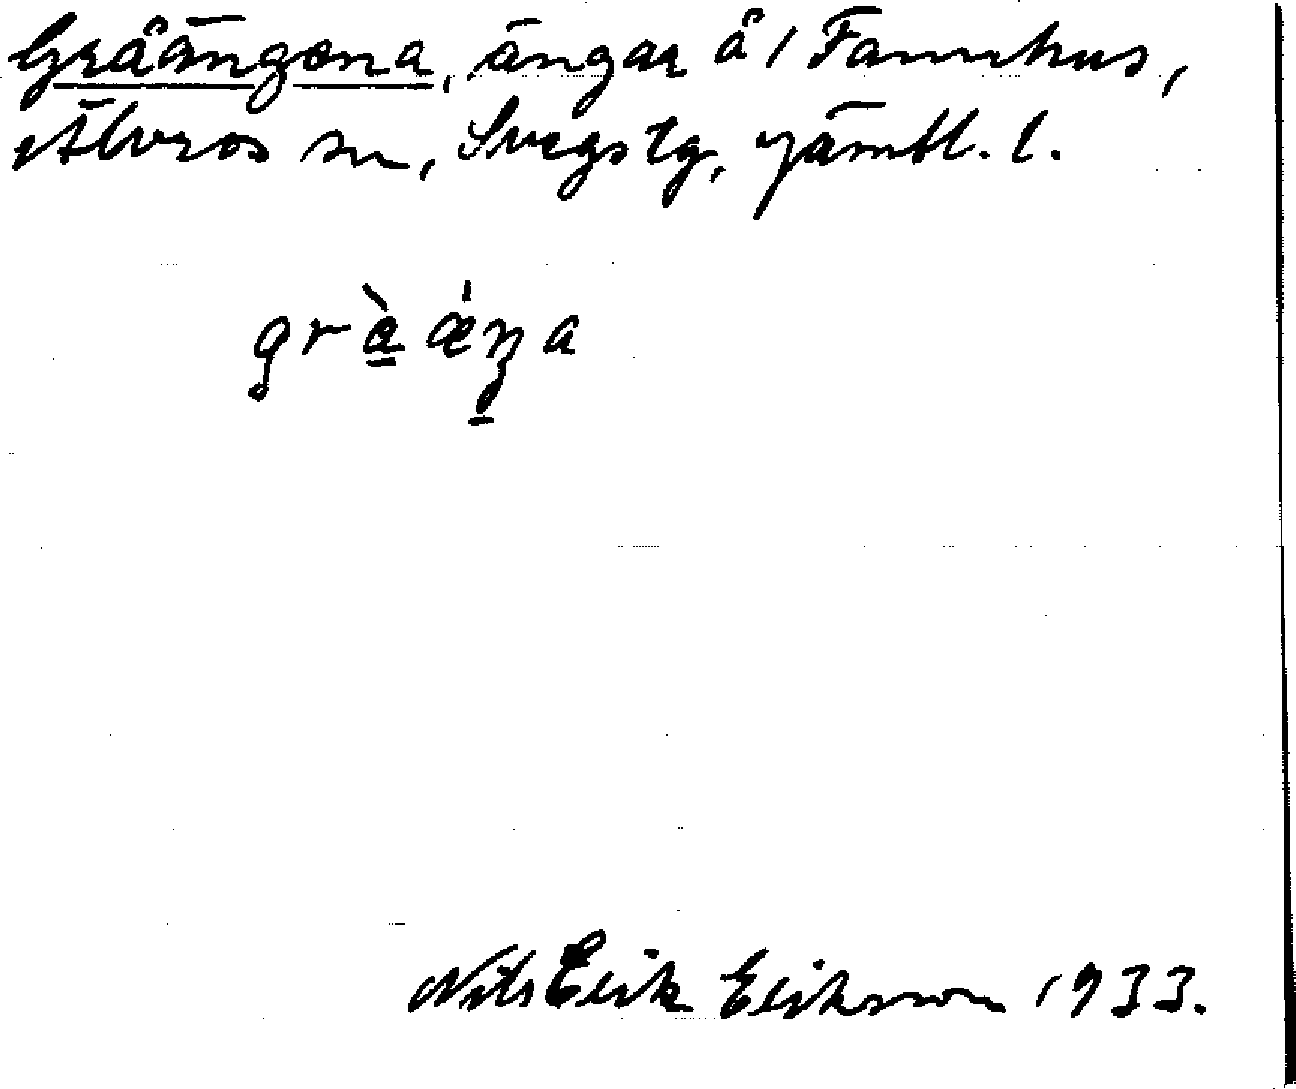 Gråängena, ängar å 1 Fannhus,
Älvros sn, Svegs tg, Jämtl. l.
grà ǽŋa
Nils Erik Eriksson 1933.